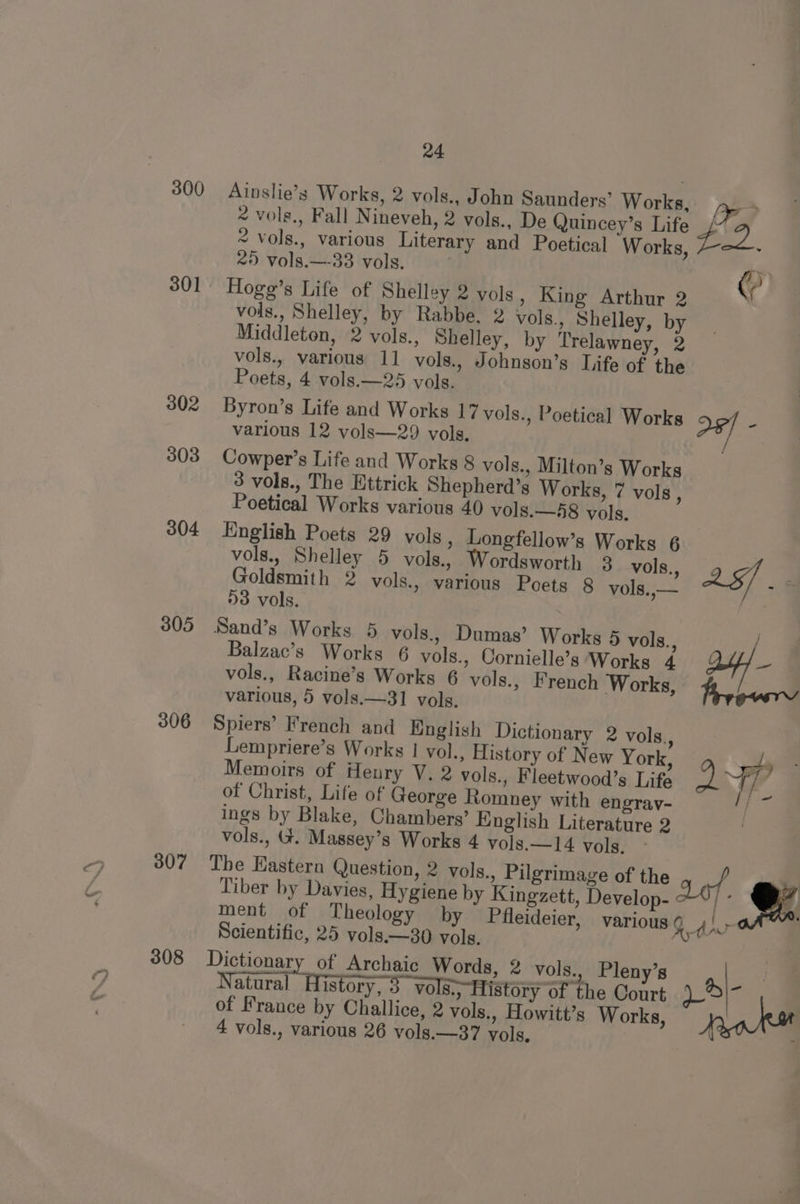 24
300 Ainslie's Works, 2 vols., John Saunders' Works,
2 vols., Fall Nineveh, 2 vols., De Quincey's Life
2 vols., various Literary and Poetical Works,
25 vols.—33 vols.
301 Hogg's Life of Shelley 2 vols, King Arthur 2
vols., Shelley, by Rabbe. 2 vols., Shelley, by
Middleton, 2 vols., Shelley, by Trelawney, 2
vols., various 11 vols., Johnson's Life of the
Poets, 4 vols.—25 vols.
302 Byron's Life and Works 17 vols., Poetical Works
various 12 vols—29 vols.
303 Cowper's Life and Works 8 vols., Milton's Works
3 vols., The Ettrick Shepherd's Works, 7 vols,
Poetical Works various 40 vols.—58 vols.
304 English Poets 29 vols, Longfellow's Works 6
vols., Shelley 5 vols., Wordsworth 3 vols.,
Goldsmith 2 vols., various Poets 8 vols.,—
53 vols.
305 Sand's Works 5 vols., Dumas' Works 5 vols.,
Balzac's Works 6 vols., Cornielle's Works 4
vols., Racine's Works 6 vols., French Works,
various, 5 vols.—31 vols.
306 Spiers' French and English Dictionary 2 vols.,
Lempriere's Works 1 vol., History of New York,
Memoirs of Henry V. 2 vols., Fleetwood's Life
of Christ, Life of George Romney with engrav-
ings by Blake, Chambers' English Literature 2
vols., G. Massey's Works 4 vols.—14 vols.
307 The Eastern Question, 2 vols., Pilgrimage of the
Tiber by Davies, Hygiene by Kingzett, Develop-
ment of Theology by Pfleideier, various
Scientific, 25 vols.—30 vols.
308 Dictionary of Archaic Words, 2 vols., Pleny's
Natural History, 3 vols., History of the Court
of France by Challice, 2 vols., Howitt's Works,
4 vols., various 26 vols.—37 vols.